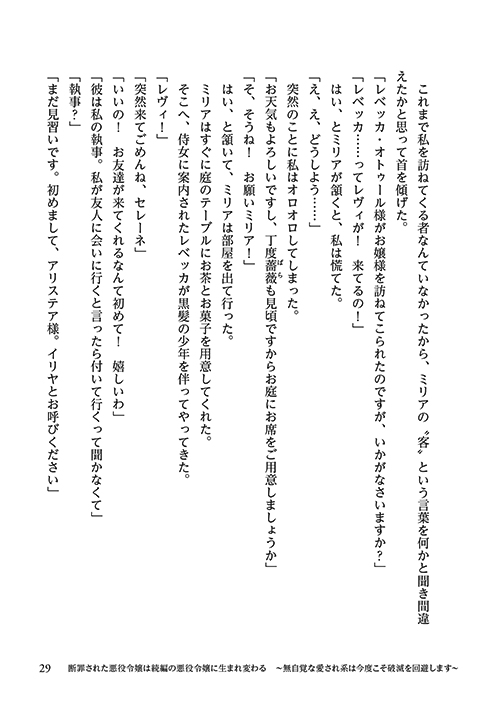 これまで私を訪ねてくる者なんていなかったから、ミリアの〝客〟という言葉を何かと聞き間違
えたかと思って首を傾げた。
「レベッカ・オトゥール様がお嬢様を訪ねてこられたのですが、いかがなさいますか？」
「レベッカ……ってレヴィが！　来てるの！」
はい、とミリアが頷くと、私は慌てた。
「え、え、どうしよう……」
突然のことに私はオロオロしてしまった。
「お天気もよろしいですし、丁度薔薇も見頃ですからお庭にお席をご用意しましょうか」
ばら
「そ、そうね！　お願いミリア！」
はい、と頷いて、ミリアは部屋を出て行った。
ミリアはすぐに庭のテーブルにお茶とお菓子を用意してくれた。
そこへ、侍女に案内されたレベッカが黒髪の少年を伴ってやってきた。
「レヴィ！」
「突然来てごめんね、セレーネ」
「いいの！　お友達が来てくれるなんて初めて！　嬉しいわ」
「彼は私の執事。私が友人に会いに行くと言ったら付いて行くって聞かなくて」
「執事？」
「まだ見習いです。初めまして、アリステア様。イリヤとお呼びください」
29　断罪された悪役令嬢は続編の悪役令嬢に生まれ変わる　～無自覚な愛され系は今度こそ破滅を回避します～